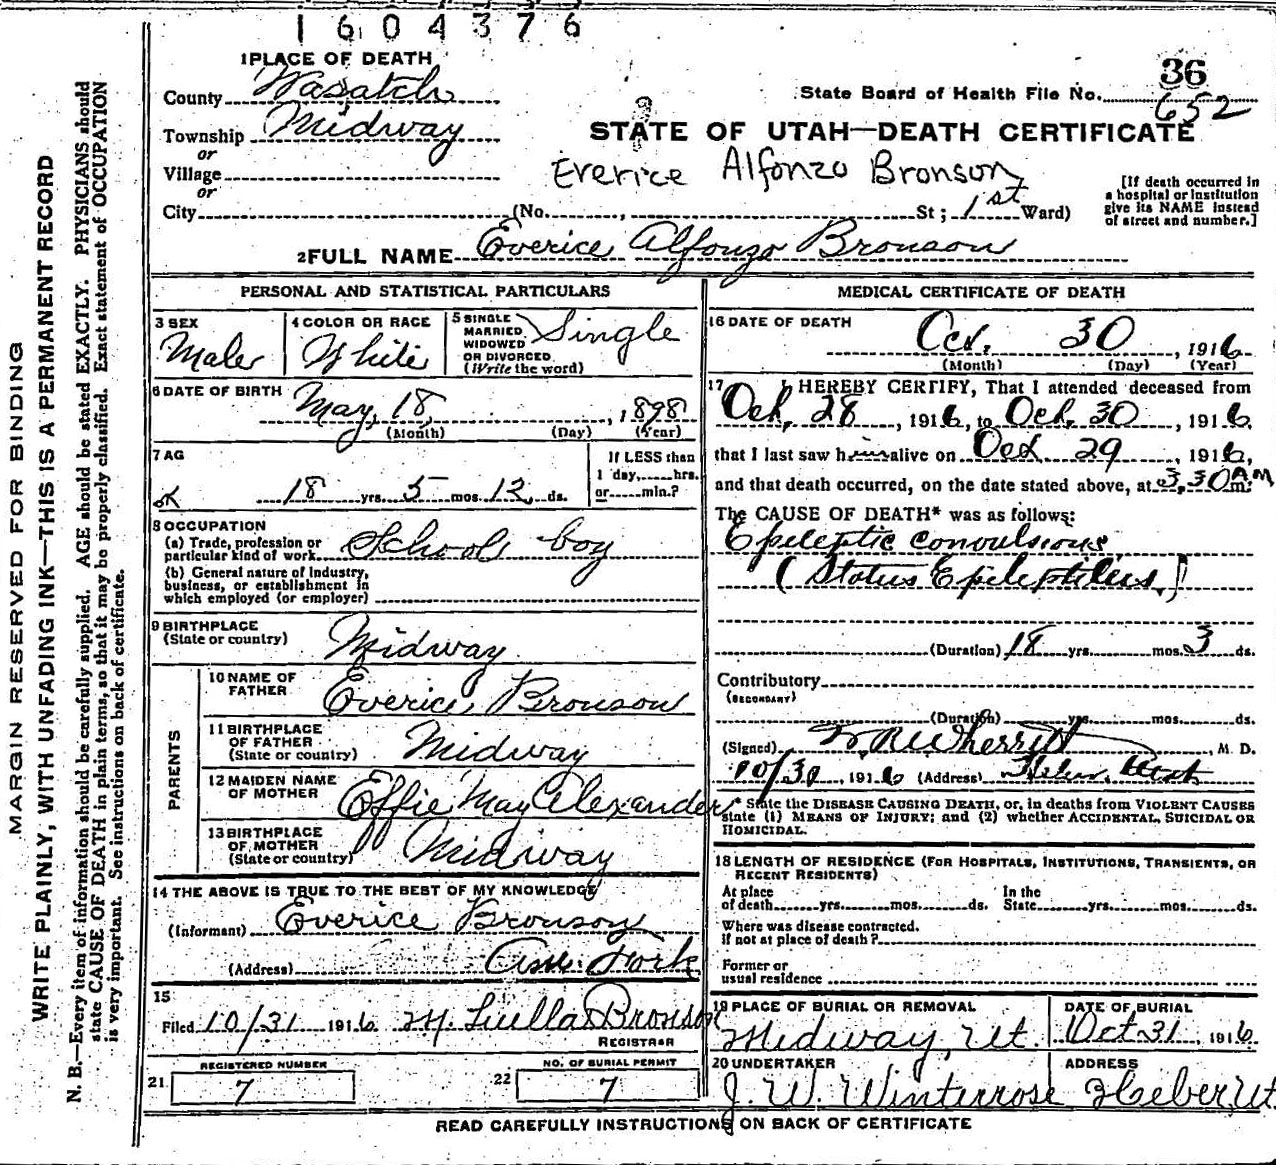 1604376
1 PLACE OF DEATH
36
County Wasatch
State Board of Health File No. 652
Township Midway
STATE OF UTAH—DEATH CERTIFICATE
or
Village
Everice Alfonzo Bronson
or
[If death occurred in
a hospital or institution
give its NAME instead
of street and number.]
City (No. , St; 1st Ward)
2 FULL NAME Everice Alfonzo Bronson
PERSONAL AND STATISTICAL PARTICULARS
3 SEX
Male
4 COLOR OR RACE
White
5 SINGLE
MARRIED
WIDOWED
OR DIVORCED
(Write the word)
Single
6 DATE OF BIRTH
May, 18, , 1898
(Month) (Day) (Year)
7 AG
18 yrs. 5 mos. 12 ds.
If LESS than
1 day, hrs.
or min.?
8 OCCUPATION
(a) Trade, profession or
particular kind of work School boy
(b) General nature of industry,
business, or establishment in
which employed (or employer)
9 BIRTHPLACE
(State or country) Midway
PARENTS
10 NAME OF
FATHER Everice Bronson
11 BIRTHPLACE
OF FATHER
(State or country) Midway
12 MAIDEN NAME
OF MOTHER Effie May Alexander
13 BIRTHPLACE
OF MOTHER
(State or country) Midway
14 THE ABOVE IS TRUE TO THE BEST OF MY KNOWLEDGE
(Informant) Everice Bronson
(Address) Am. Fork
15
Filed 10/31 1916 M. Luella Bronson
REGISTRAR
REGISTERED NUMBER
21 7
NO. OF BURIAL PERMIT
22 7
MEDICAL CERTIFICATE OF DEATH
16 DATE OF DEATH
Oct. 30 , 1916
(Month) (Day) (Year)
17 I HEREBY CERTIFY, That I attended deceased from
Oct, 28 , 1916, to Oct. 30 , 1916.
that I last saw him alive on Oct 29 , 1916,
and that death occurred, on the date stated above, at 3,30 A M m.
The CAUSE OF DEATH* was as follows:
Epileptic convulsions
(Status Epilepticus.)
(Duration) 18 yrs. mos. 3 ds.
Contributory
(SECONDARY)
(Duration) yrs. mos. ds.
(Signed) W R Wherritt , M. D.
10/30, 1916 (Address) Heber, Utah
* State the DISEASE CAUSING DEATH, or, in deaths from VIOLENT CAUSES
state (1) MEANS OF INJURY; and (2) whether ACCIDENTAL, SUICIDAL OR
HOMICIDAL.
18 LENGTH OF RESIDENCE (FOR HOSPITALS, INSTITUTIONS, TRANSIENTS, OR
RECENT RESIDENTS)
At place
of death yrs. mos. ds.
In the
State yrs. mos. ds.
Where was disease contracted.
if not at place of death?
Former or
usual residence
19 PLACE OF BURIAL OR REMOVAL
Midway, Ut.
DATE OF BURIAL
Oct 31 , 1916
20 UNDERTAKER
J. W. Winterrose
ADDRESS
Heber, Ut
READ CAREFULLY INSTRUCTIONS ON BACK OF CERTIFICATE
MARGIN RESERVED FOR BINDING
WRITE PLAINLY, WITH UNFADING INK—THIS IS A PERMANENT RECORD
N. B.—Every item of information should be carefully supplied. AGE should be stated EXACTLY. PHYSICIANS should
state CAUSE OF DEATH in plain terms, so that it may be properly classified. Exact statement of OCCUPATION
is very important. See instructions on back of certificate.